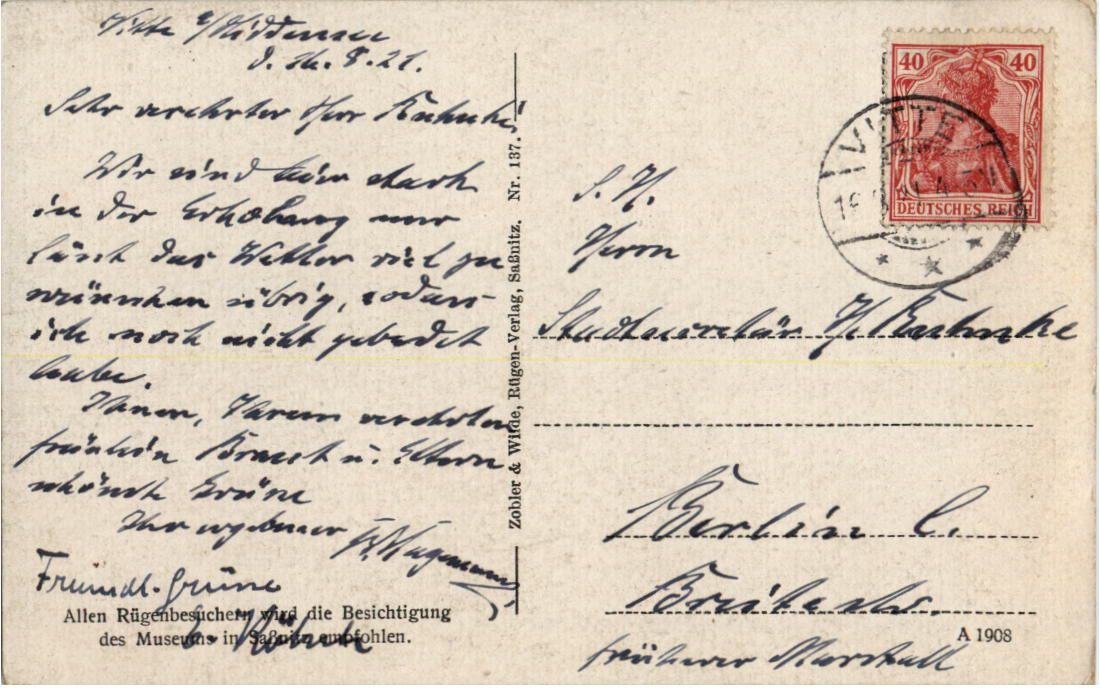 Vitte a/Hiddensee
d. 16. 8. 21.
Sehr verehrter Herr
Wir sind hier stark
in der Erholung nur
lässt das Wetter viel zu
wünschen übrig, sodass
ich noch nicht gebadet
habe.
Ihnen, Ihrem verehrten
Fräulein Braut u. Eltern
schönste Grüße
Ihr ergebener
Freundl. Grüße
Allen Rügenbesuchern wird die Besichtigung
des Museums in Saßnitz empfohlen.
Zobler & Wilde, Rügen-Verlag, Saßnitz. Nr. 137.
40 40
DEUTSCHES REICH
VITTE
S. H.
Herrn
Stadtsekretär
Berlin C.
Breitestr.
früherer Marstall
A 1908